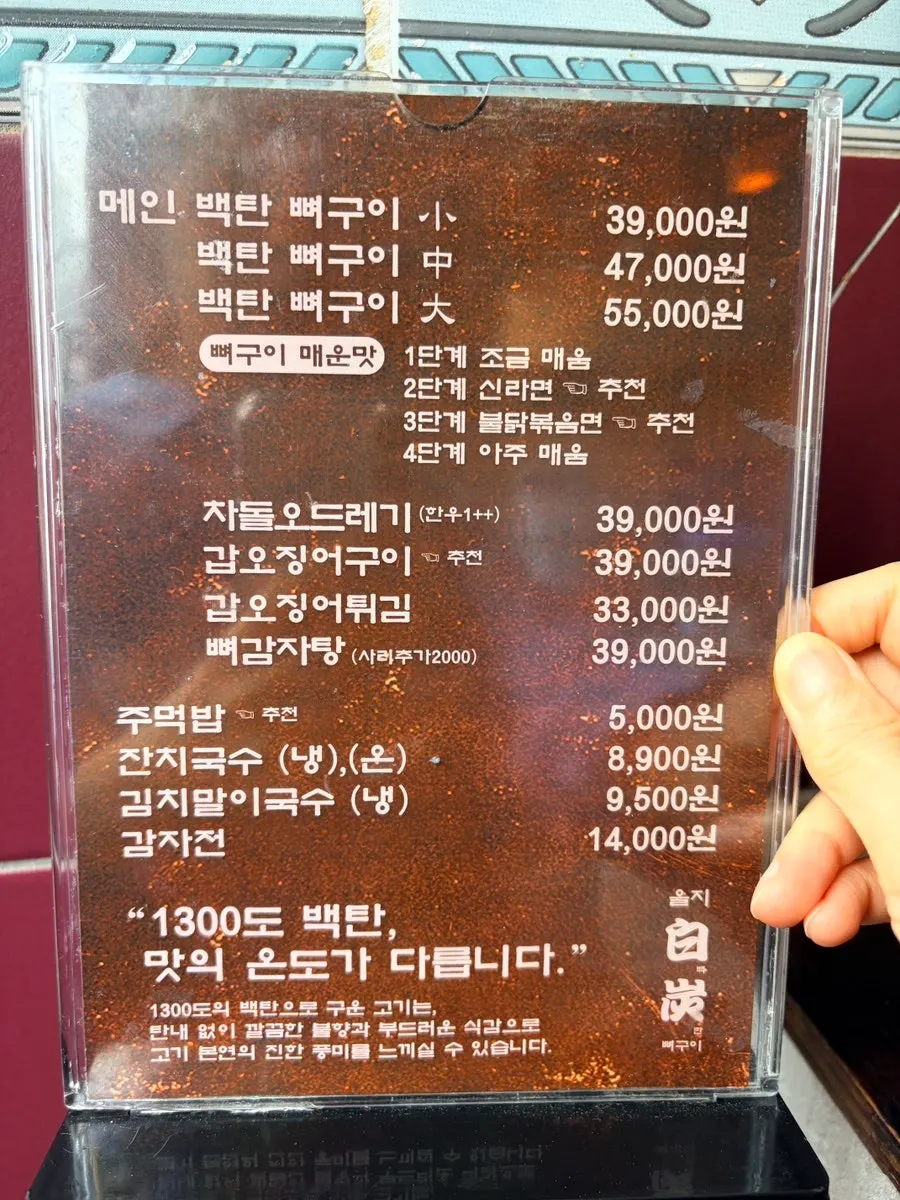 메인 백탄 뼈구이 小 39,000원
백탄 뼈구이 中 47,000원
백탄 뼈구이 大 55,000원
뼈구이 매운맛 1단계 조금 매움
2단계 신라면 ☜ 추천
3단계 불닭볶음면 ☜ 추천
4단계 아주 매움
차돌오드레기 (한우1++) 39,000원
갑오징어구이 ☜ 추천 39,000원
갑오징어튀김 33,000원
뼈감자탕 (사리추가2000) 39,000원
주먹밥 ☜ 추천 5,000원
잔치국수 (냉),(온) 8,900원
김치말이국수 (냉) 9,500원
감자전 14,000원
“1300도 백탄,
맛의 온도가 다릅니다.”
1300도의 백탄으로 구운 고기는,
탄내 없이 깔끔한 불향과 부드러운 식감으로
고기 본연의 진한 풍미를 느끼실 수 있습니다.
을지
白 백
炭 탄
뼈구이